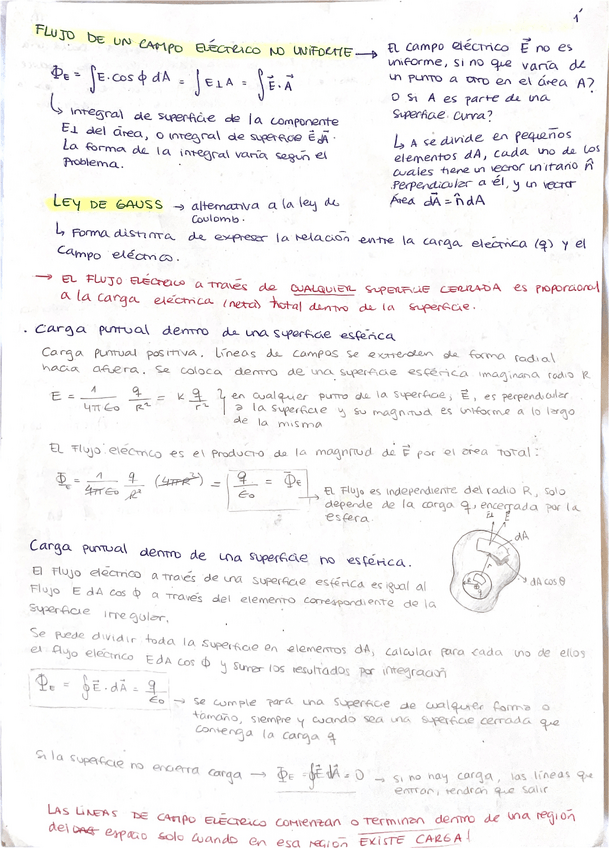 1
FLUJO DE UN CAMPO ELÉCTRICO NO UNIFORME → El campo eléctrico E⃗ no es
uniforme, si no que varía de
un punto a otro en el área A?
O si A es parte de una
superficie curva?
Φ_E = ∫E·cos ϕ dA = ∫E⊥A = ∫E⃗·A⃗
↳ integral de superficie de la componente
E⊥ del área, o integral de superficie E⃗dA⃗.
La forma de la integral varía según el
problema.
↳ A se divide en pequeños
elementos dA, cada uno de los
cuales tiene un vector unitario n̂
perpendicular a él, y un vector
área dA⃗ = n̂dA
LEY DE GAUSS → alternativa a la ley de
Coulomb.
↳ Forma distinta de expresar la relación entre la carga eléctrica (q) y el
campo eléctrico.
→ EL FLUJO ELÉCTRICO a través de CUALQUIER SUPERFICIE CERRADA es proporcional
a la carga eléctrica (neta) total dentro de la superficie.
. Carga puntual dentro de una superficie esférica
Carga puntual positiva. Líneas de campos se extienden de forma radial
hacia afuera. Se coloca dentro de una superficie esférica imaginaria radio R
E = 1/4πϵ0 q/R² = k q/r² } en cualquier punto de la superficie, E⃗, es perpendicular
a la superficie y su magnitud es uniforme a lo largo
de la misma
El Flujo eléctrico es el producto de la magnitud de E⃗ por el área total:
Φ_E = 1/4πϵ0 q/R² (4πR²) = q/ϵ0 = Φ_E
→ El Flujo es independiente del radio R, solo
depende de la carga q, encerrada por la
esfera
E⊥ E⃗
dA
r
dA cos θ
Carga puntual dentro de una superficie no esférica.
El Flujo eléctrico a través de una superficie esférica es igual al
Flujo E dA cos ϕ a través del elemento correspondiente de la
superficie irregular.
Se puede dividir toda la superficie en elementos dA, calcular para cada uno de ellos
el flujo eléctrico E dA cos ϕ y sumar los resultados por integración
Φ_E = ∮E⃗·dA⃗ = q/ϵ0
→ se cumple para una superficie de cualquier forma o
tamaño, siempre y cuando sea una superficie cerrada que
contenga la carga q
Si la superficie no encierra carga → Φ_E = ∮E⃗dA⃗ = 0 → si no hay carga, las líneas que
entran, tendrán que salir
LAS LÍNEAS DE CAMPO ELÉCTRICO COMIENZAN o TERMINAN DENTRO DE UNA REGIÓN
del espacio solo cuando en esa región EXISTE CARGA!